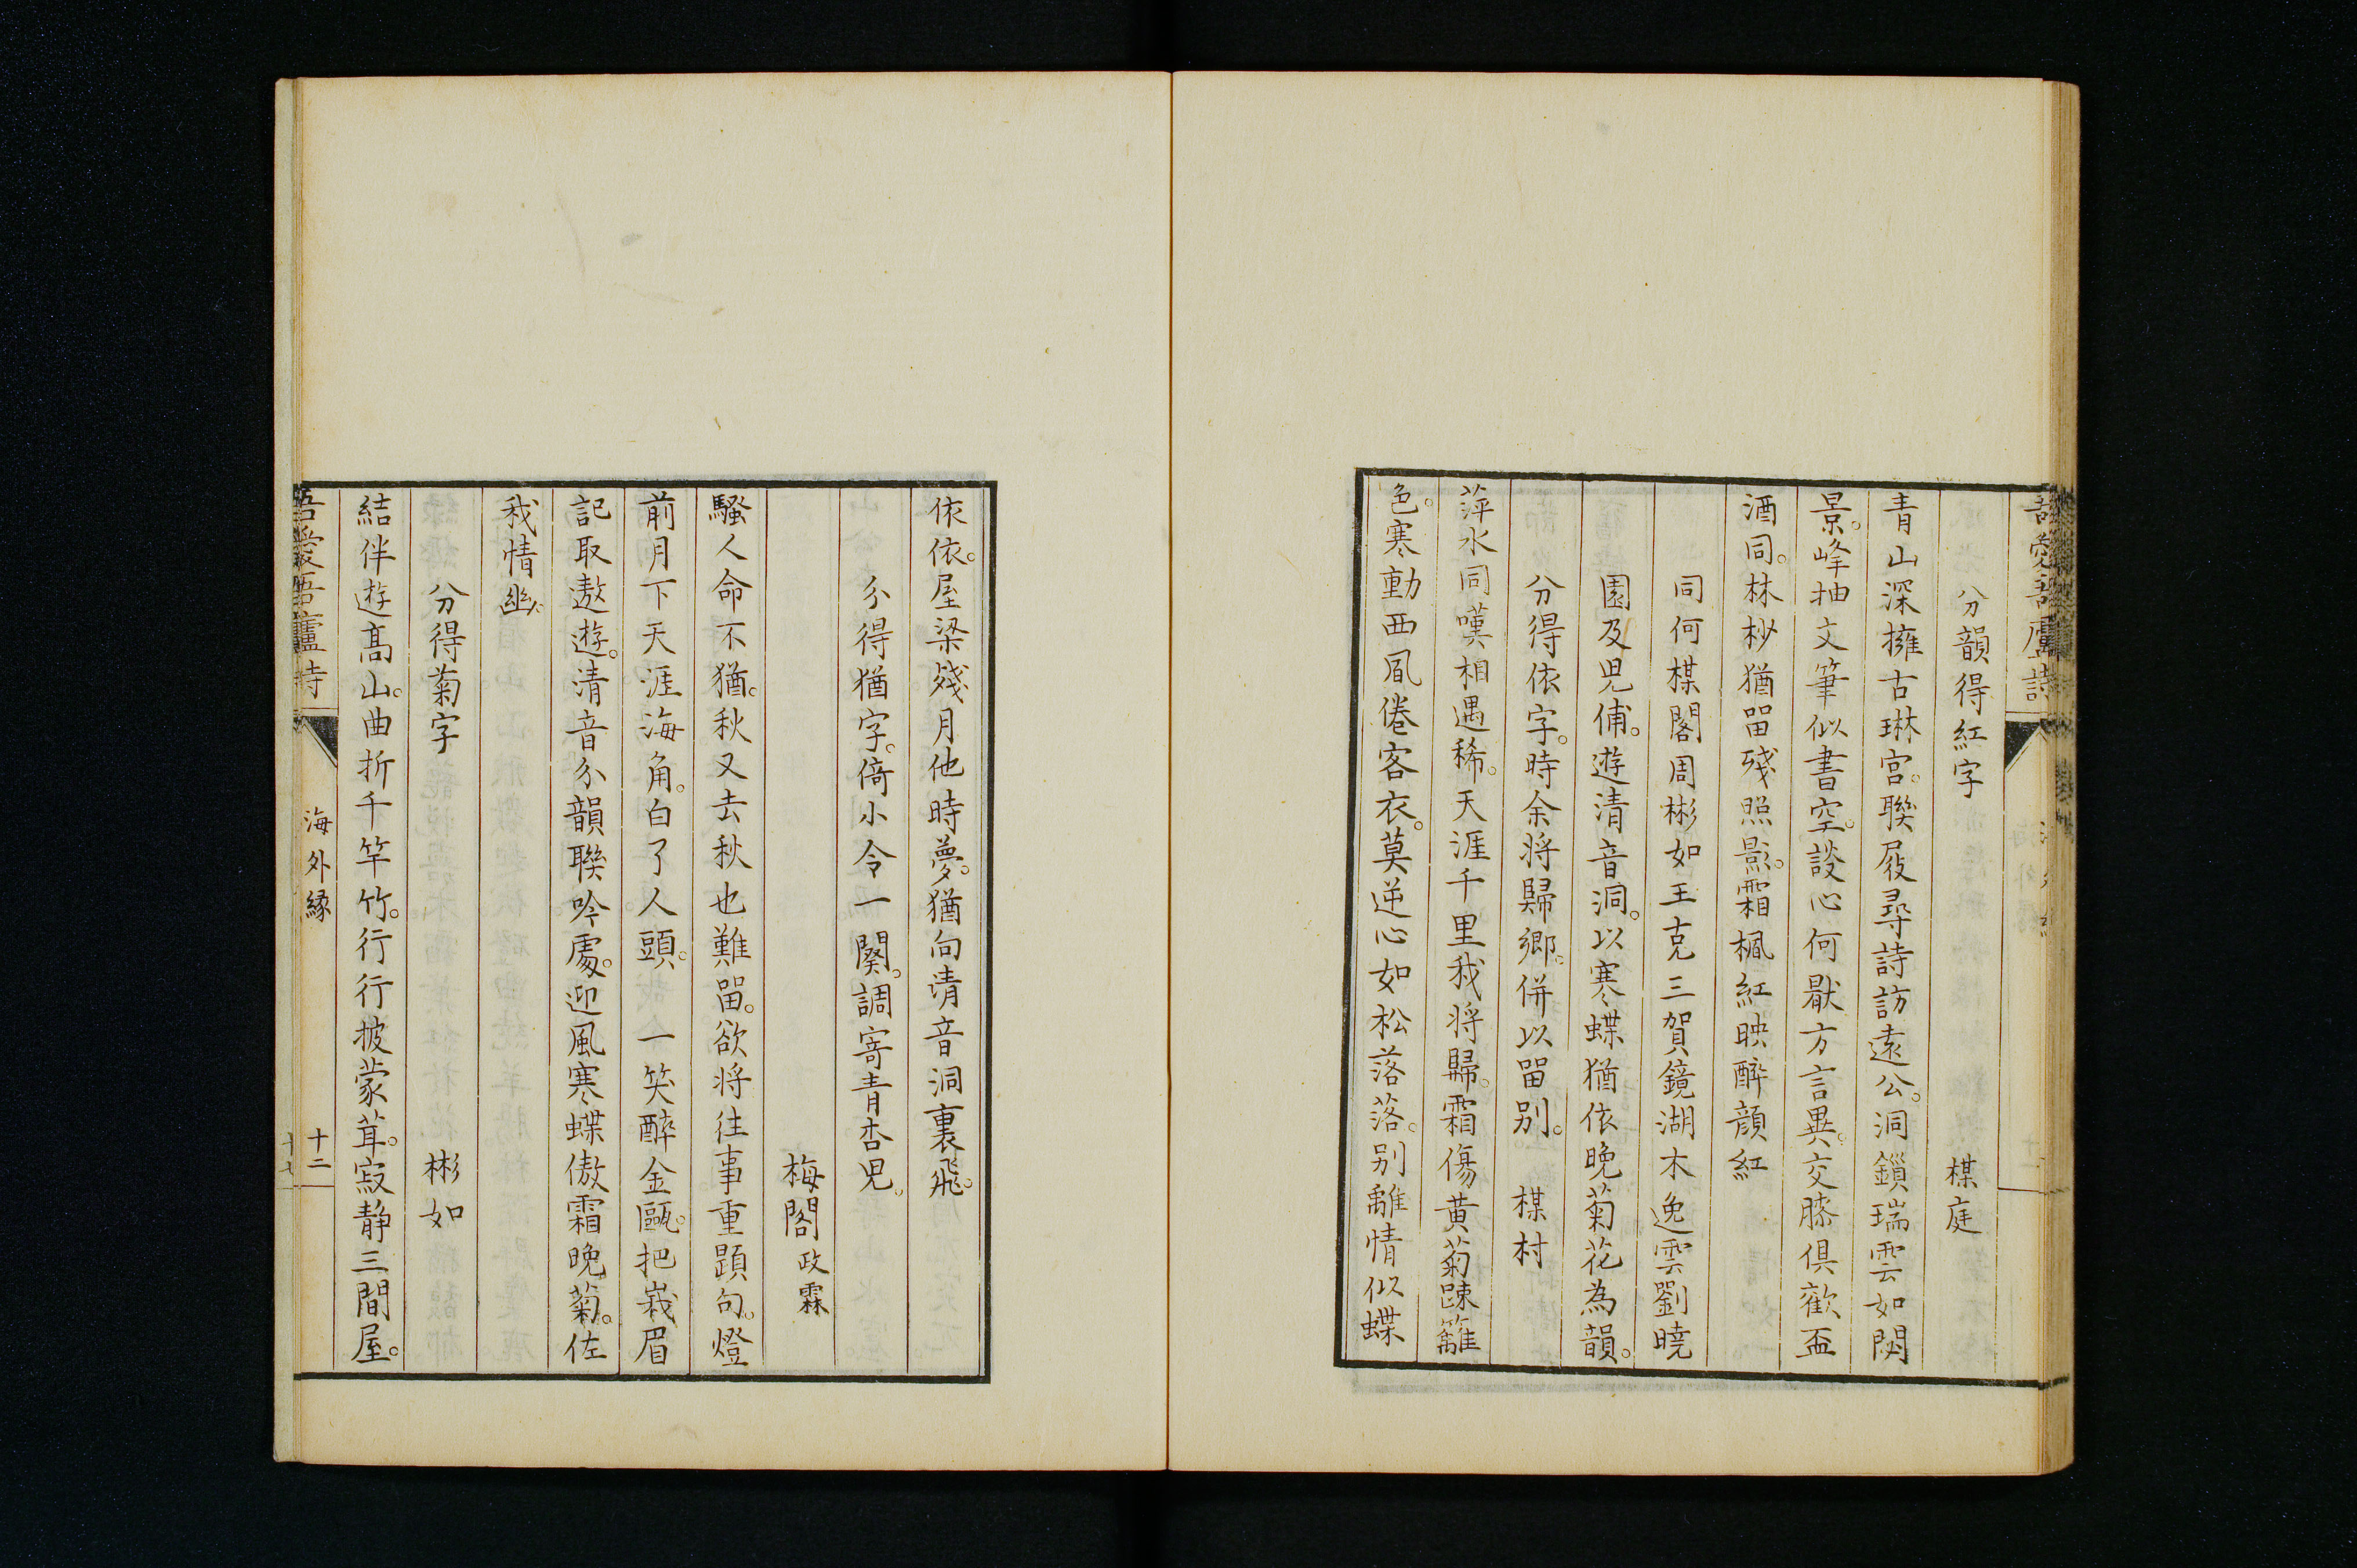 吾愛吾廬詩
分韻得紅字 楳庭
青山深擁古琳宮。聯屐尋詩訪遠公。洞鎖瑞雲如閟
景。峰抽文筆似書空。談心何厭方言異。交膝俱歡盃
酒同。林杪猶畱殘照影。霜楓紅映醉顔紅
同何楳閣周彬如王克三賀鏡湖木逸雲劉曉
園及兒俌。遊清音洞。以寒蝶猶依晚菊花為韻。
分得依字。時余将歸鄉。併以畱别。 楳村
萍水同嘆相遇稀。天涯千里我将歸。霜傷黄菊踈籬
色。寒動西風倦客衣。莫逆心如松落落。别離情似蝶
依依。屋梁殘月他時夢。猶向清音洞裏飛。
分得猶字。倚小令一闋。調寄青杏兒。
梅閣 政霖
騷人命不猶。秋又去秋也難畱。欲将往事重題句。燈
前月下天涯海角。白了人頭。 一笑醉金甌。把峩眉
記取遨遊。清音分韻聯吟處。迎風寒蝶傲霜晚菊。佐
我情幽
分得菊字 彬如
結伴遊髙山。曲折千竿竹。行行披蒙茸。寂静三間屋。
吾愛吾廬詩 海外緣 十二